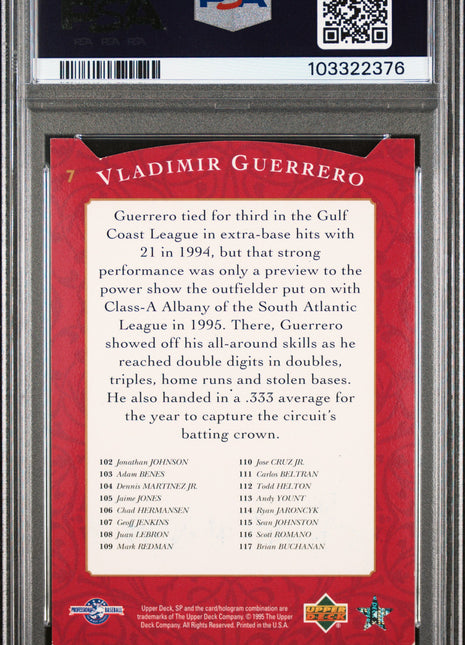 PSA
PSA PSA PSA
PSA
103322376
7 VLADIMIR GUERRERO
Guerrero tied for third in the Gulf
Coast League in extra-base hits with
21 in 1994, but that strong
performance was only a preview to the
power show the outfielder put on with
Class-A Albany of the South Atlantic
League in 1995. There, Guerrero
showed off his all-around skills as he
reached double digits in doubles,
triples, home runs and stolen bases.
He also handed in a .333 average for
the year to capture the circuit's
batting crown.
102 Jonathan JOHNSON
103 Adam BENES
104 Dennis MARTINEZ JR.
105 Jaime JONES
106 Chad HERMANSEN
107 Geoff JENKINS
108 Juan LEBRON
109 Mark REDMAN
110 Jose CRUZ JR.
111 Carlos BELTRAN
112 Todd HELTON
113 Andy YOUNT
114 Ryan JARONCYK
115 Sean JOHNSTON
116 Scott ROMANO
117 Brian BUCHANAN
PROFESSIONAL BASEBALL
Upper Deck, SP and the card/hologram combination are
trademarks of The Upper Deck Company. © 1995 The Upper
Deck Company. All Rights Reserved. Printed in the U.S.A.
UPPER
DECK